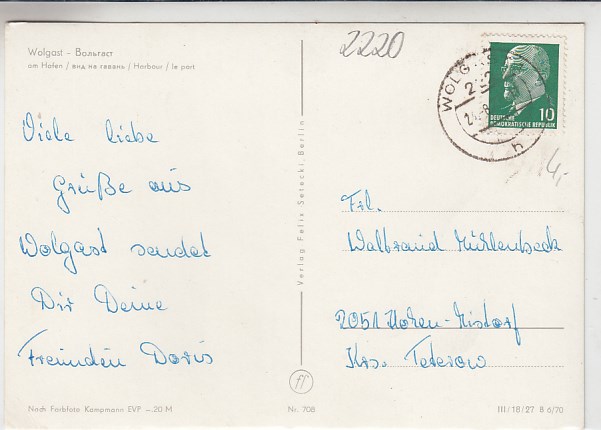 Wolgast – Вольгаст
am Hafen / вид на гавань / Harbour / le port
2220
WOLGAST
DEUTSCHE
DEMOKRATISCHE REPUBLIK
10
h
4,-
Viele liebe
Grüße aus
Wolgast sendet
Dir Deine
Freundin Doris
Verlag Felix Setecki Berlin
Frl.
Walbraud Mühlenbeck
2051 Hohen-Mistorf
Krs. Teterow
Nach Farbfoto Kampmann EVP –.20 M
Nr. 708
III/18/27 B 6/70